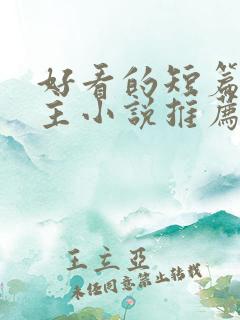 好看的短篇
主小说推薦
王立亞
未经同意禁止转载